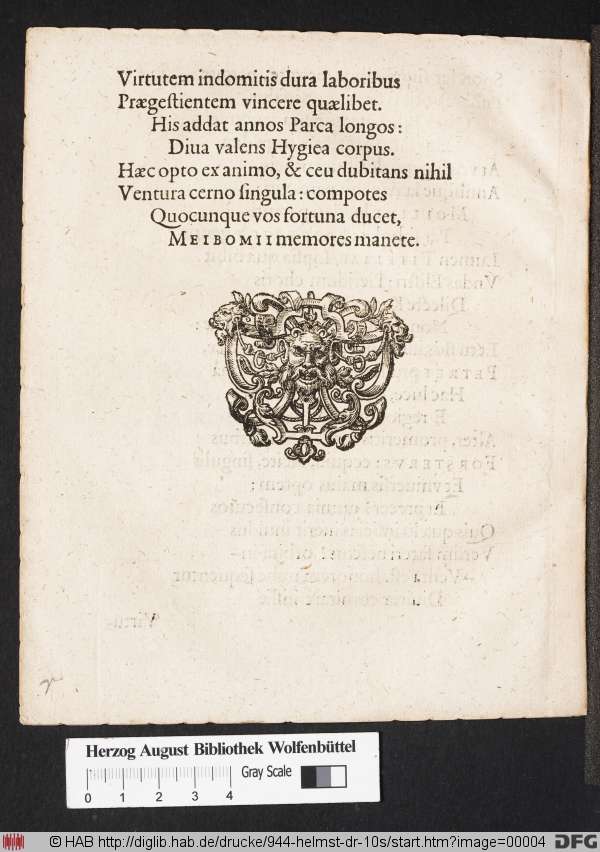 Virtutem indomitis dura laboribus
Prægestientem vincere quælibet.
His addat annos Parca longos:
Diua valens Hygiea corpus.
Hæc opto ex animo, & ceu dubitans nihil
Ventura cerno singula: compotes
Quocunque vos fortuna ducet,
MEIBOMII memores manete.
Herzog August Bibliothek Wolfenbüttel
Gray Scale
0 1 2 3 4
© HAB http://diglib.hab.de/drucke/944-helmst-dr-10s/start.htm?image=00004
DFG